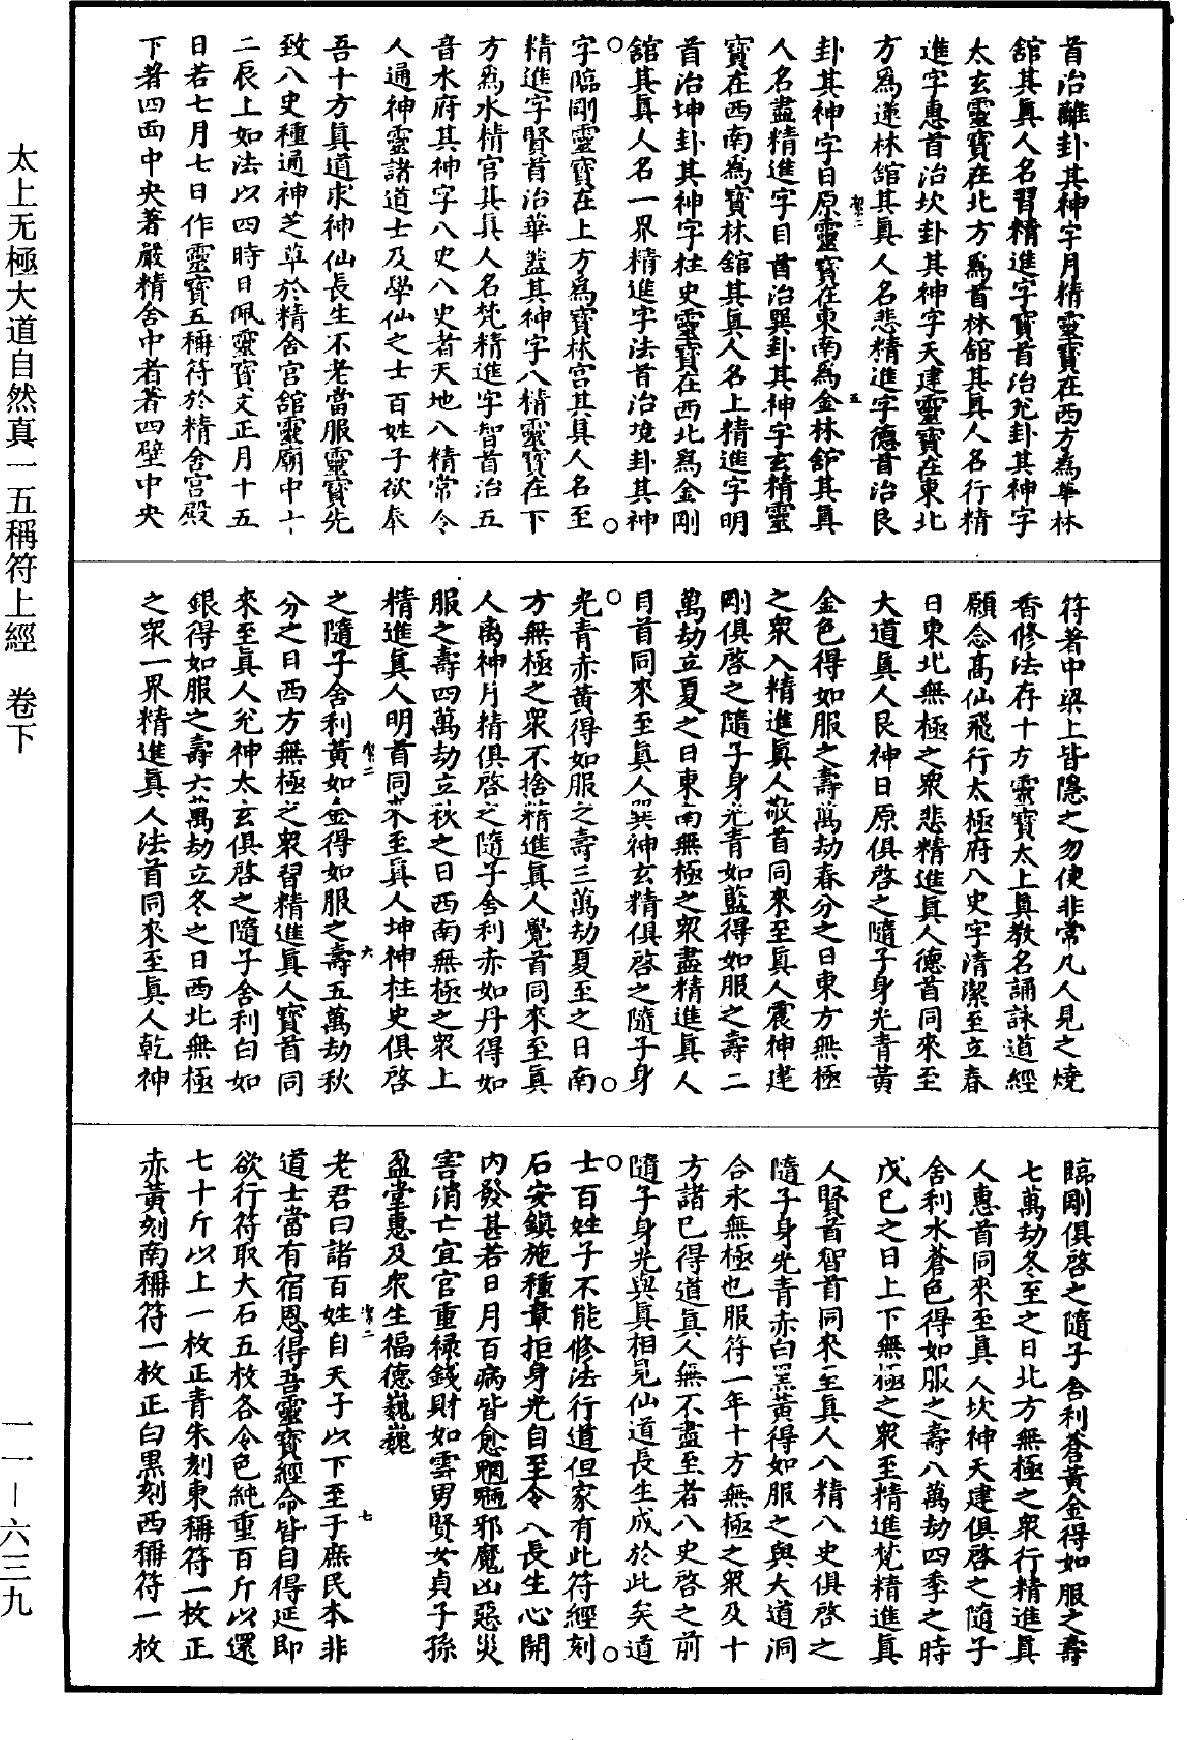 首治離卦其神字月精靈寶在西方爲華林
舘其眞人名習精進字寶首治兌卦其神字
太玄靈寶在北方爲首林舘其眞人名行精
進字惠首治坎卦其神字天建靈寶在東北
方爲蓮林舘其眞人名悲精進字德首治艮
卦其神字日原靈寶在東南爲金林舘其眞
人名盡精進字目首治巽卦其神字玄精靈
寶在西南爲寶林舘其眞人名上精進字明
首治坤卦其神字柱史靈寶在西北爲金剛
舘其眞人名一界精進字法首治境卦其神
字臨剛靈寶在上方爲寶林宫其眞人名至
精進字賢首治華蓋其神字八精靈寶在下
方爲水精宫其眞人名梵精進字智首治五
音水府其神字八史八史者天地八精常令
人通神靈諸道士及學仙之士百姓子欲奉
吾十方眞道求神仙長生不老當服靈寶先
致八史種通神芝草於精舍宫舘靈廟中十
二辰上如法以四時日佩靈寶文正月十五
日若七月七日作靈寶五稱符於精舍宫殿
下著四面中央著嚴精舍中者著四壁中央
符著中梁上皆隱之勿使非常凡人見之燒
香修法存十方靈寶太上眞教名誦詠道經
願念高仙飛行太極府八史字清潔至立春
日東北無極之衆悲精進眞人德首同來至
大道眞人艮神日原俱啓之隨子身光青黃
金色得如服之壽萬劫春分之日東方無極
之衆入精進眞人敬首同來至眞人震神建
剛俱啓之隨子身光青如藍得如服之壽二
萬劫立夏之日東南無極之衆盡精進眞人
目首同來至眞人巽神玄精俱啓之隨子身
光青赤黃得如服之壽三萬劫夏至之日南
方無極之衆不捨精進眞人覺首同來至眞
人离神月精俱啓之隨子舍利赤如丹得如
服之壽四萬劫立秋之日西南無極之衆上
精進眞人明首同來至眞人坤神柱史俱啓
之隨子舍利黃如金得如服之壽五萬劫秋
分之日西方無極之衆習精進眞人寶首同
來至眞人兌神太玄俱啓之隨子舍利白如
銀得如服之壽六萬劫立冬之日西北無極
之衆一界精進眞人法首同來至眞人乾神
臨剛俱啓之隨子舍利蒼黃金得如服之壽
七萬劫冬至之日北方無極之衆行精進眞
人惠首同來至眞人坎神天建俱啓之隨子
舍利水蒼色得如服之壽八萬劫四季之時
戊巳之日上下無極之衆至精進梵精進眞
人賢首智首同來至眞人八精八史俱啓之
隨子身光青赤白黑黃得如服之與大道洞
合永無極也服符一年十方無極之衆及十
方諸已得道眞人無不盡至者八史啓之前
隨子身光與眞相見仙道長生成於此矣道
士百姓子不能修法行道但家有此符經刻
石安鎭施種章拒身光自至令人長生心開
内發甚若日月百病皆愈魍魎邪魔凶惡災
害消亡宜官重禄錢財如雲男賢女貞子孫
盈堂惠及衆生福德巍巍
老君曰諸百姓自天子以下至于庶民本非
道士當有宿恩得吾靈寶經命皆自得延即
欲行符取大石五枚各令色純重百斤以還
七十斤以上一枚正青朱刻東稱符一枚正
赤黃刻南稱符一枚正白黑刻西稱符一枚
太上无極大道自然真一五稱符上經 卷下
一一－六三九